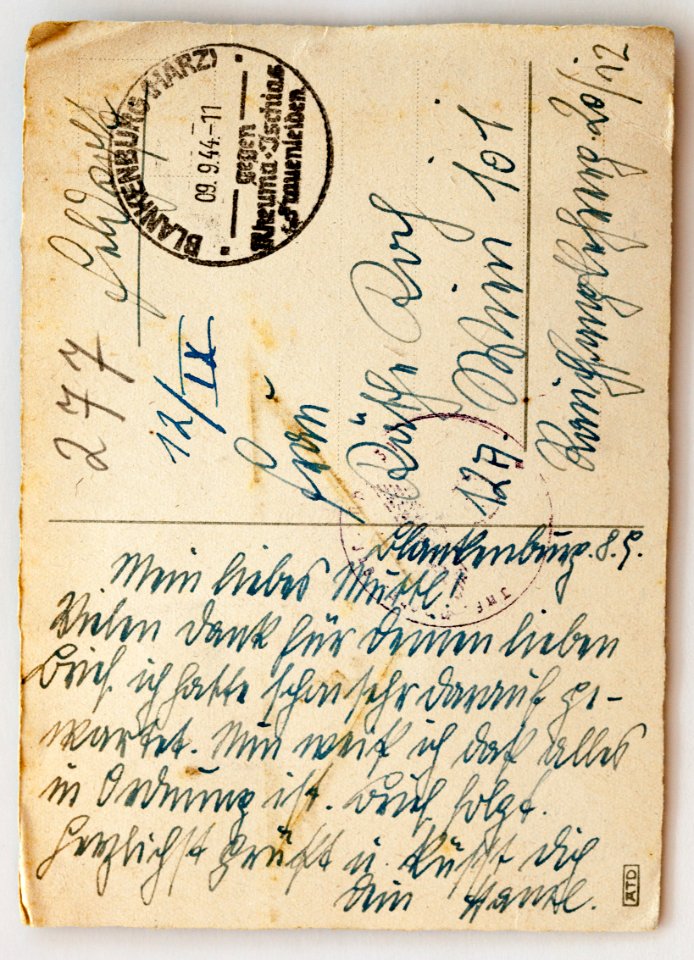 Feldpost
BLANKENBURG (HARZ)
09.9.44.-11
gegen
Rheuma · Ischias
Frauenleiden
277
12/IX
Frau
Käthe Koch
12A Wien 101
20/22
Blankenburg. 8.9.
Mein liebes Muttl!
Vielen Dank für Deinen lieben
Brief, ich hatte schon sehr darauf ge-
wartet. Nun weiß ich daß alles
in Ordnung ist. Brief folgt.
Herzlichst grüßt u. küßt Dich
Dein Hansl.
ATD